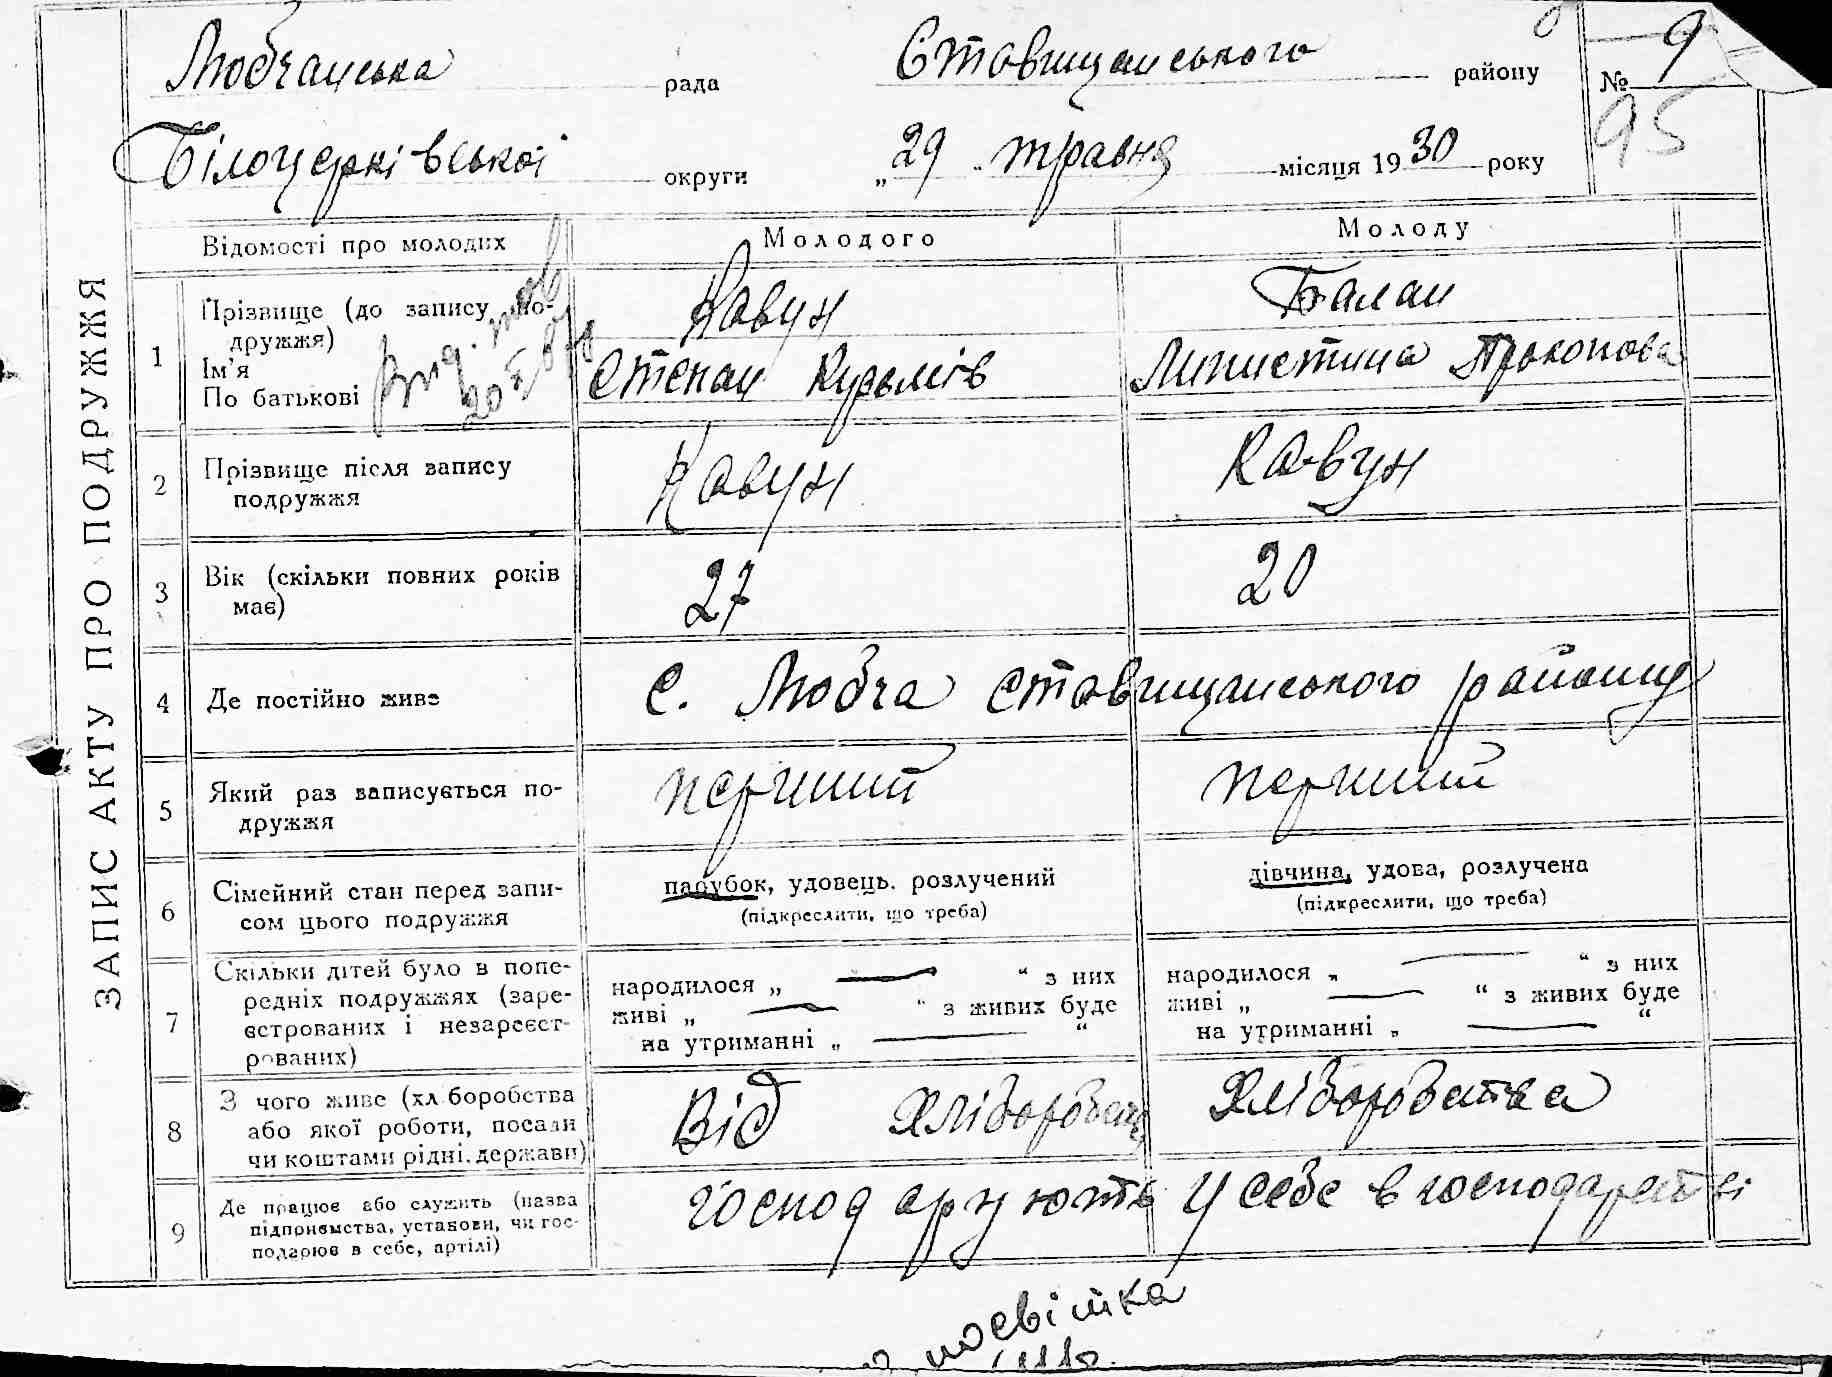 Любчанська рада Ставищанського району № 9
95
Білоцерківської округи „29“ травня місяця 1930 року
ЗАПИС АКТУ ПРО ПОДРУЖЖЯ
Відомості про молодих Молодого Молоду
1 Прізвище (до запису по-
дружжя) Кавун Балан
Ім'я
По батькові Степан Кузьмів Прокопова
2 Прізвище після запису
подружжя Кавун Кавун
3 Вік (скільки повних років
має) 27 20
4 Де постійно живе с. Любча Ставищанського району
5 Який раз записується по-
дружжя перший перший
6 Сімейний стан перед запи-
сом цього подружжя
парубок, удовець. розлучений дівчина, удова, розлучена
(підкреслити, що треба) (підкреслити, що треба)
7 Скільки дітей було в попе-
редніх подружжях (заре-
єстрованих і незареєст-
рованих)
народилося „ — “ з них народилося „ — “ з них
живі „ — “ з живих буде живі „ — “ з живих буде
на утриманні „ — “ на утриманні „ — “
8 З чого живе (хліборобства
або якої роботи, посади
чи коштами рідні, держави)
Від хліборобства
9 Де працює або служить (назва
підприємства, установи, чи гос-
подарює в себе, артілі)
господарують у себе в господарстві
посвітка